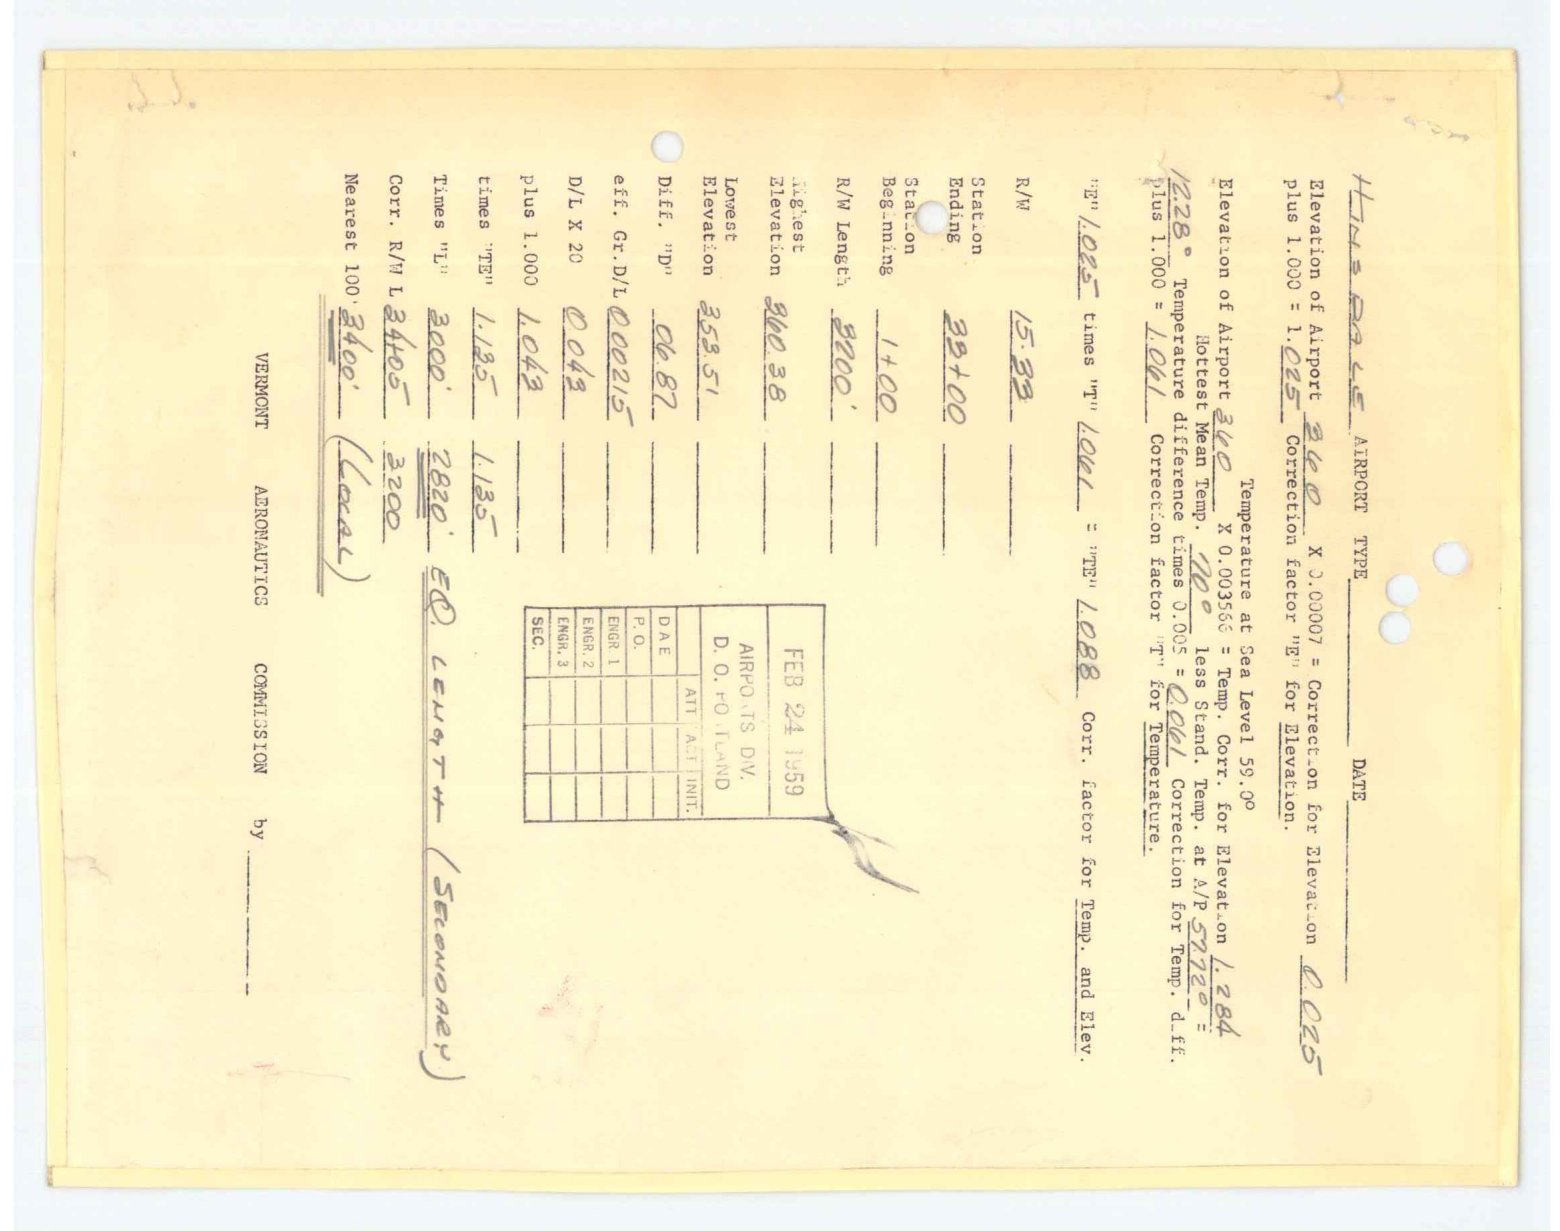 HINSDALE AIRPORT TYPE DATE
Elevation of Airport 360 X 0.00007 = Correction for Elevation 0.025
plus 1.000 = 1.025 Correction factor "E" for Elevation.
Temperature at Sea Level 59.0°
Elevation of Airport 360 X 0.003566 = Temp. Corr. for Elevation 1.284
Hottest Mean Temp. 70° less Stand. Temp. at A/P 57.72° =
12.28° Temperature difference times 0.005 = 0.061 Correction for Temp. diff.
plus 1.000 = 1.061 Correction factor "T" for Temperature.
"E" 1.025 times "T" 1.061 = "TE" 1.088 Corr. factor for Temp. and Elev.
R/W 15-33
Station
Ending 33+00
Station
Beginning 1+00
R/W Length 3200'
Highest
Elevation 360.38
Lowest
Elevation 353.51
Diff. "D" 06.87
eff. Gr.D/L 0.00215
D/L X 20 0.043
plus 1.000 1.043
times "TE" 1.135 1.135
Times "L" 3000' 2820' EQ. LENGTH (SECONDARY)
Corr. R/W L 3405 3200
Nearest 100' 3400' (LOCAL)
FEB 24 1959
AIRPORTS DIV.
D. O. PORTLAND
ATT ACT INIT.
DAE
P. O.
ENGR 1
ENGR. 2
ENGR. 3
SEC.
VERMONT AERONAUTICS COMMISSION by